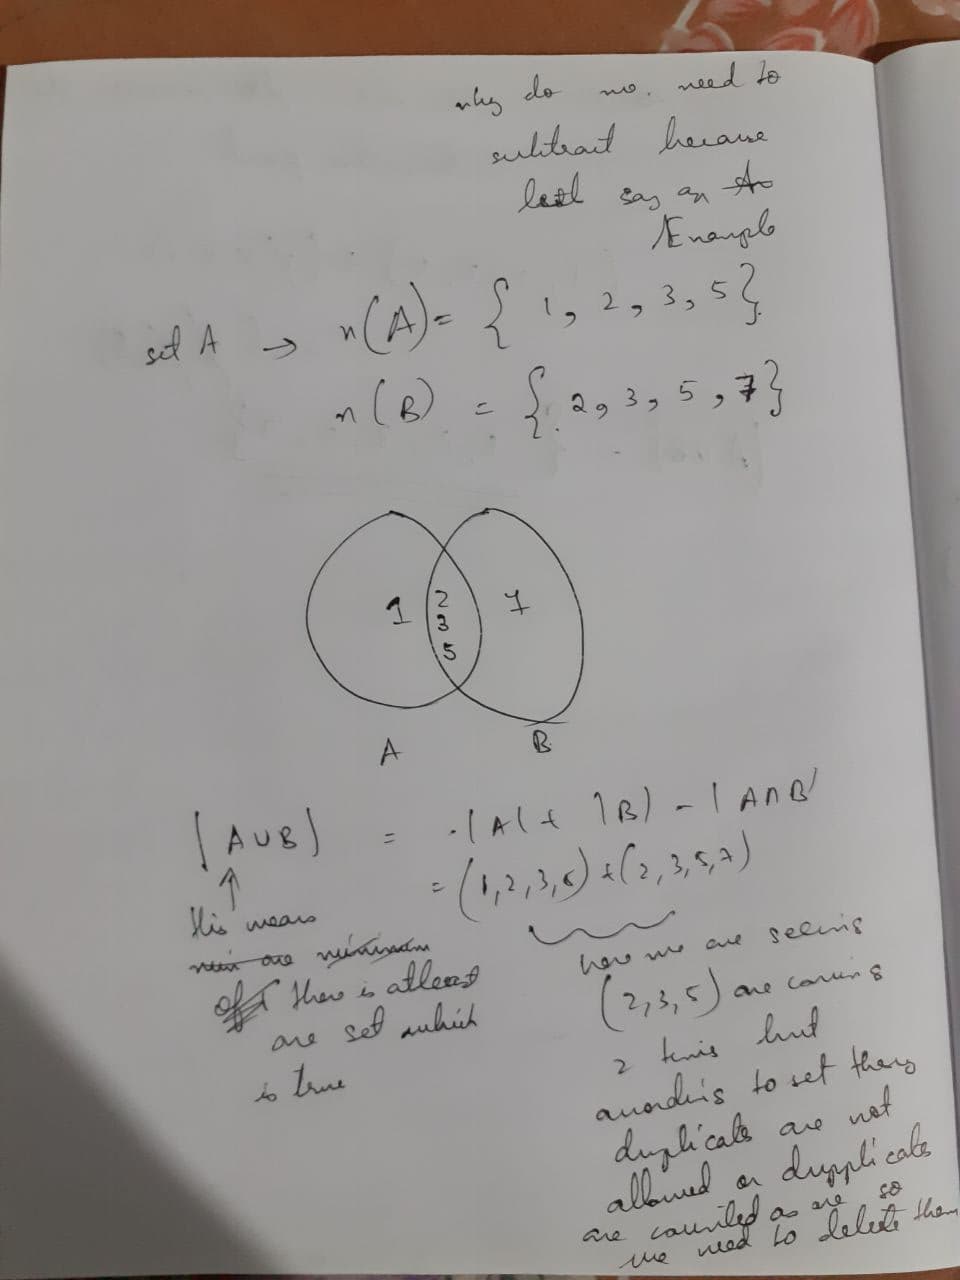 why do no. need to
subtract because
let say an A
Example
set A → n(A) = { 1, 2, 3, 5}
n(B) = { 2, 3, 5, 7}
1
2
3
5
7
A
B
|A∪B| = |A| + |B| - |A∩B|
= (1, 2, 3, 5) + (2, 3, 5, 7)
this means
are minimum
there is atleast
one set which
is true
here we are seeing
(2, 3, 5) are coming
2 times but
according to set theory
duplicate are not
allowed or dupplicate
are counted as one so
we need to delete them